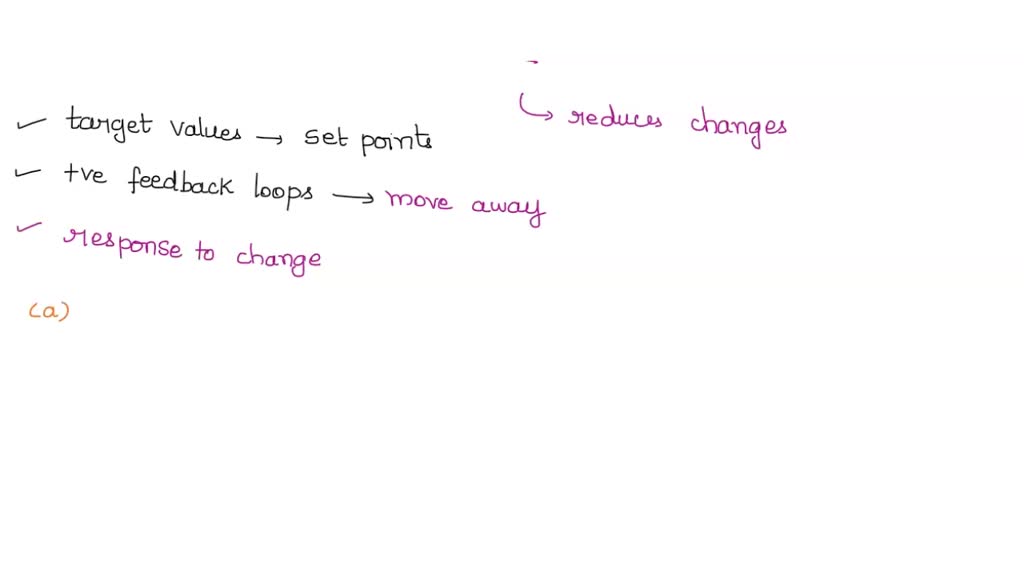 ↳ reduces changes
✓ target values → set points
✓ +ve feedback loops → move away
✓ response to change
(a)